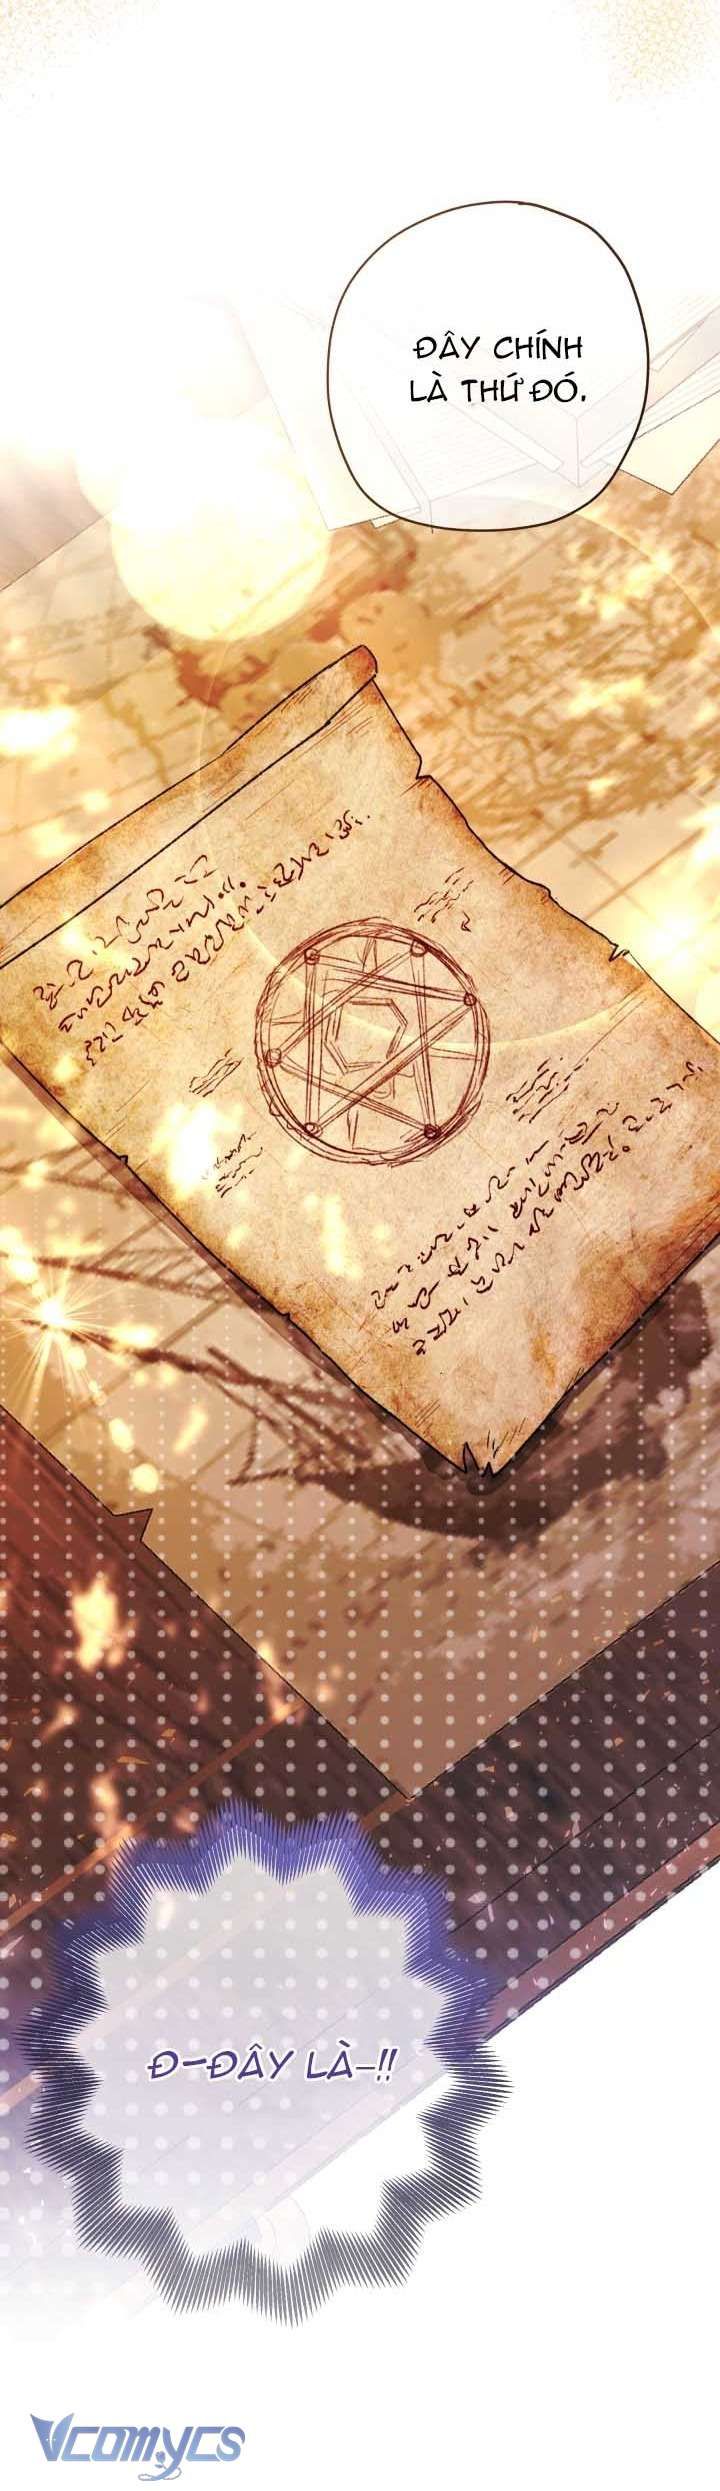 ĐÂY CHÍNH
LÀ THỨ ĐÓ.
Đ-ĐÂY LÀ-!!
Vcomycs